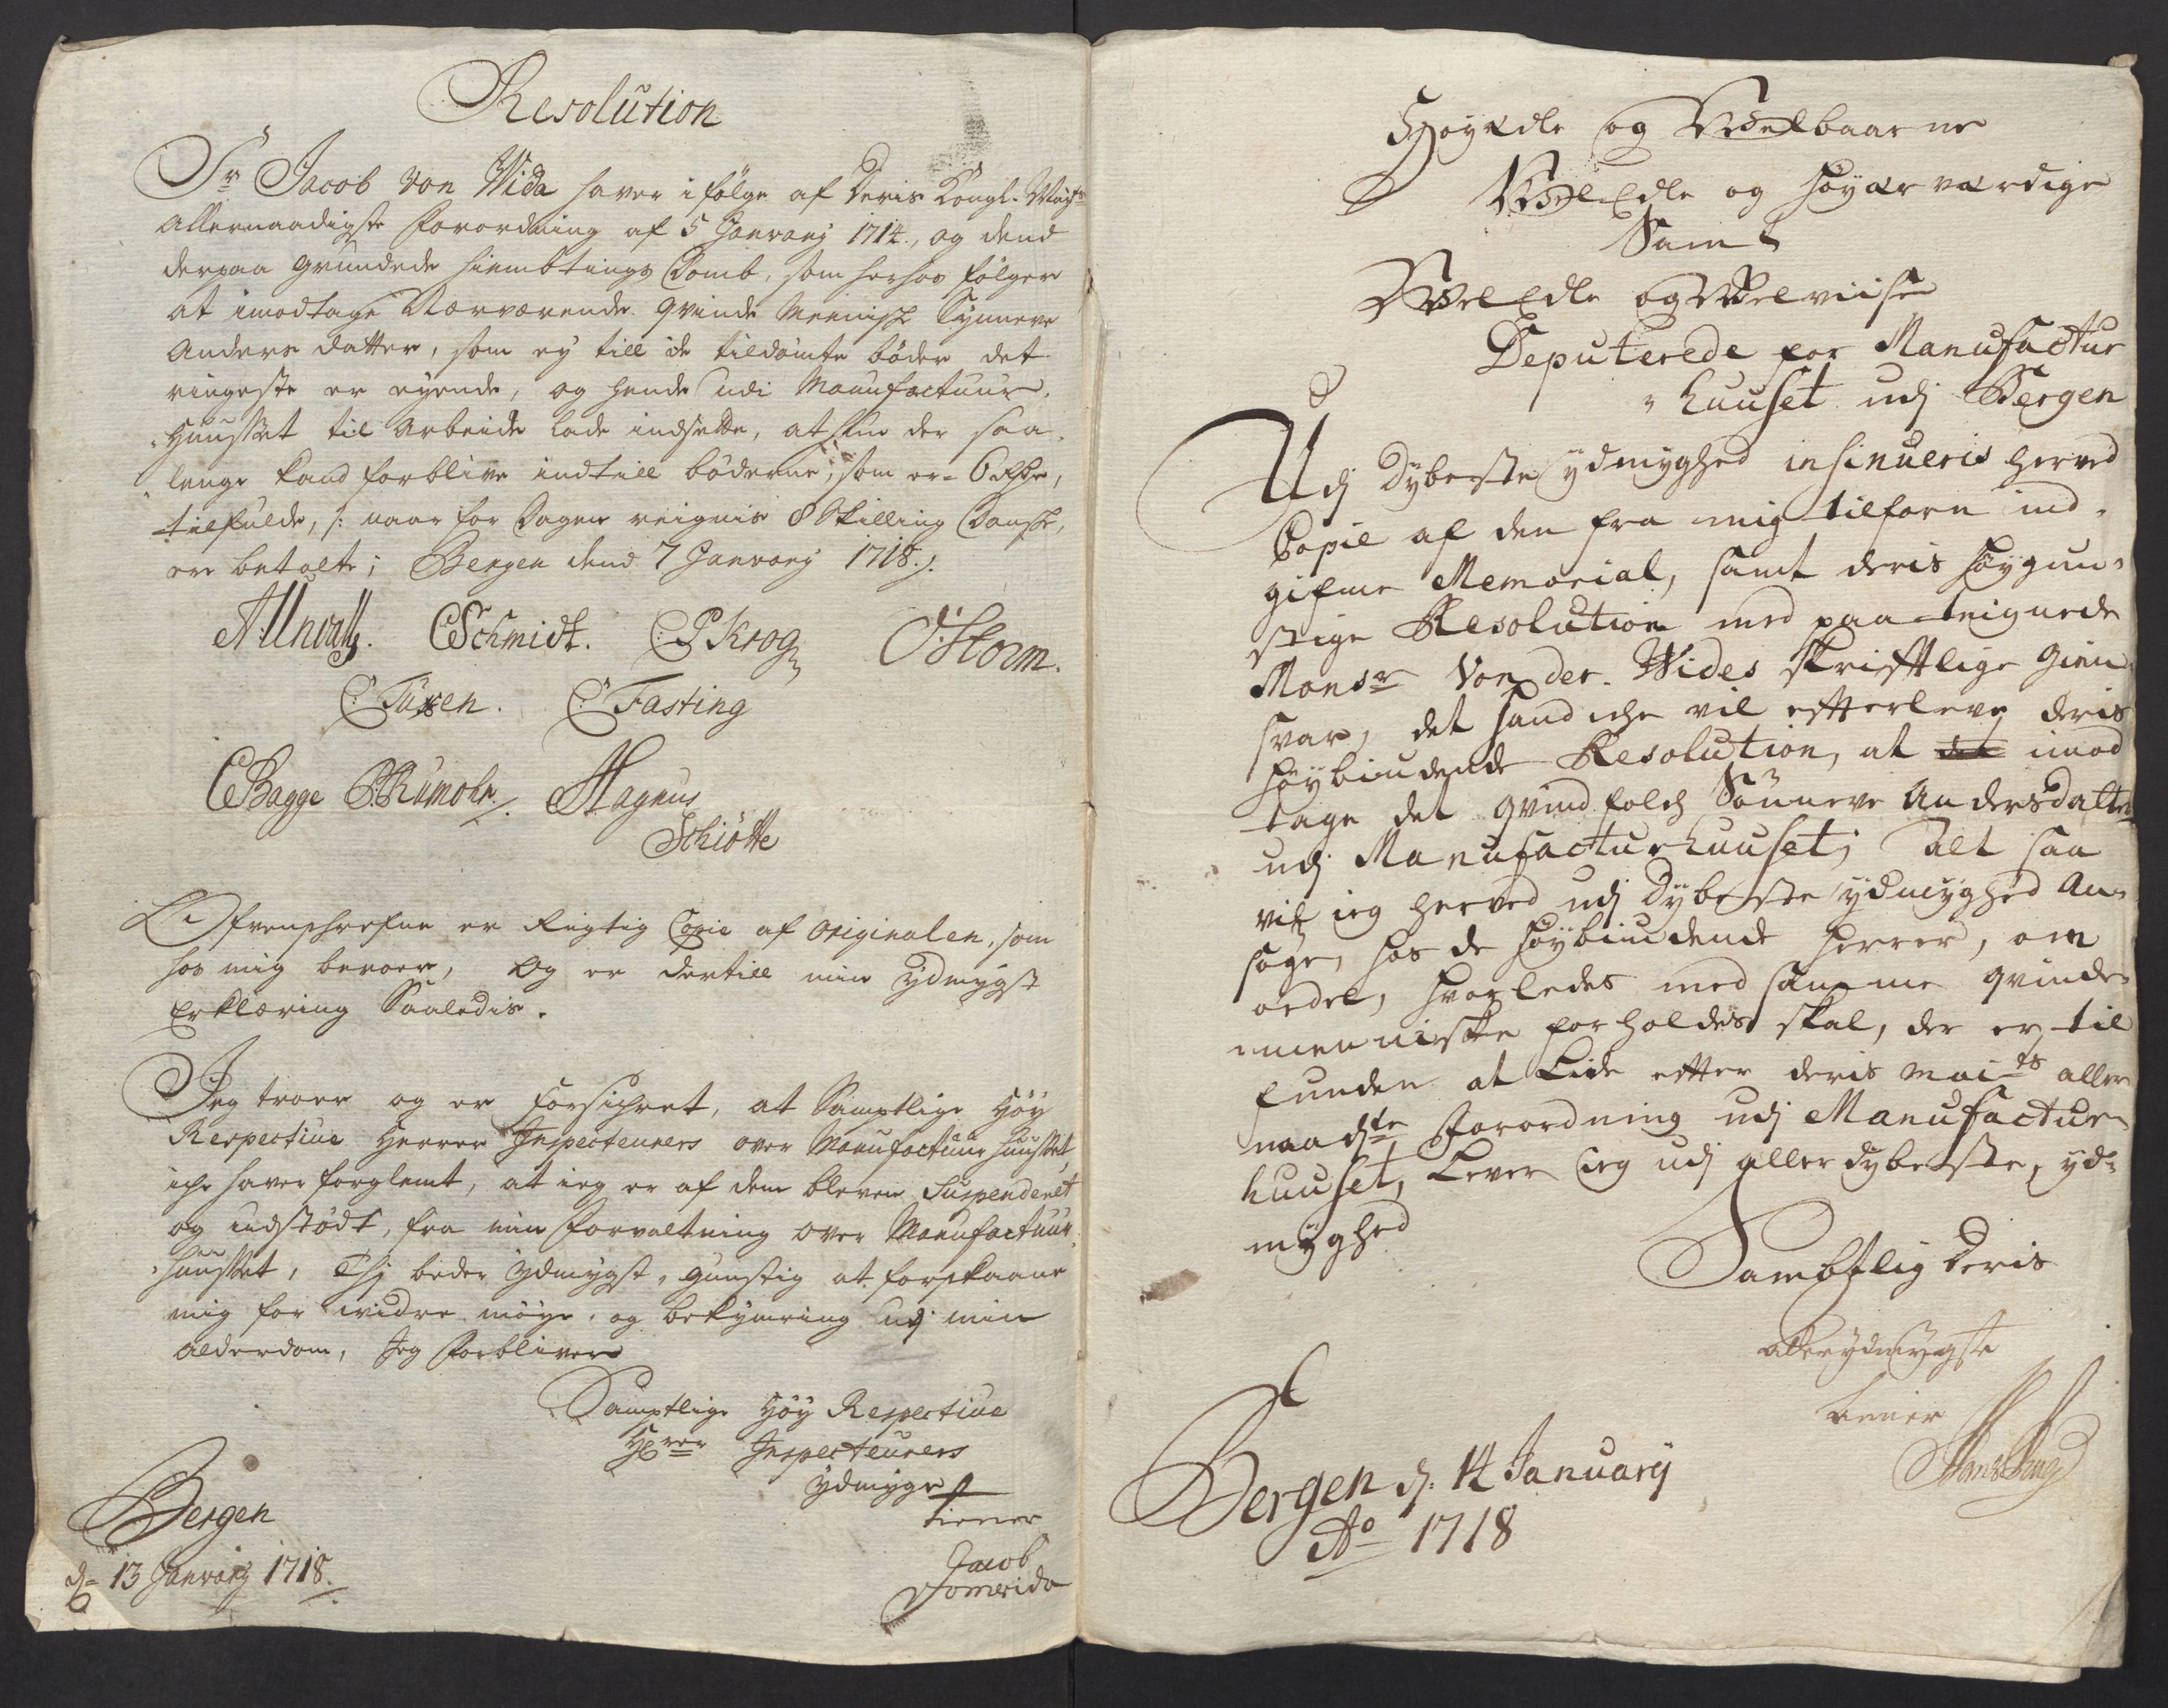 Resolution
Sr Jacob Von Wida haver i fölge af Deris Kongl. Mayts
Allernaadigste Forordning af 5 Janvarij 1714, og dend
derpaa grundede hiembtings Domb, som herhos fölger
at imodtage Nærværende qvinde Menniske Synneve
Anders datter, som ej till de tildömte böder det
ringeste er eyende, og hende udi Manufactuur-
Huusset til Arbeide lade indsette, at hun der saa
lenge kand forblive indtill böderne, som er 6 Rdr,
tilfulde, /: naar for Dagen reignis 8 Skilling Dansk,
ere betalte; Bergen dend 7 Janvarij 1718 ./.
A: Undall. CSchmidt. C: P Krog O: Storm.
C: Tuxen. C: Fasting
CBagge P: Rumohr./. Magnus
Schiötte
Ofvenschrefne er Rigtig Copie af Originalen, som
hos mig beroer, Og er dertill min ydmygst
Erklæring Saaledis.
Jeg troer og er forsichret, at Samptlige Höy
Respective Herrer Inspecteurers over Manufactuur Huusset,
iche haver forglemt, at ieg er af dem bleven Suspenderet
og udstödt, fra min forvaltning over Manufactuur
huusset, Thj beder ydmygst, gunstig at forskaane
mig for widre möye, og bekymring udj min
Alderdom, Jeg Forbliver
Samptlige Höy Respective
Hrrer Inspecteurers
ydmygst
tiener
Jacob
Vonwida
Bergen
d: 13 Janvarij 1718.
Höyædle og Velbaarne
Vel Edle og Höyærværdige
Samt
VelEdle og Velviise
Deputerede for Manufactur
huuset udj Bergen
Udj Dybeste ydmyghed insinueris herved
Copie af den fra mig tilforn ind-
gifne Memorial, samt deris Höygun-
stige Resolution med paateignede
Monsr Von der Wides skrifftlige Gien
svar, det hand iche vil efterleve deris
Höybiudende Resolution, at det imod
tage det qvindfolch Sönneve Andersdatter
udj Manufacturhuuset; Alt saa
vil ieg herved udj Dybeste ydmyghed An-
söge, hos de Höybiudende Herrer, om
ordre, hvorledes med samme qvinde-
menniske forholdes skal, der er til
funden at Lide efter deris Maits aller
naadste Forordning udj Manufactur
huuset, Lever ieg udj aller dybeste, yd-
myghed
Sambtlig Deris
allerydmygste
tiener
Bergen d: 14 January
Ao 1718